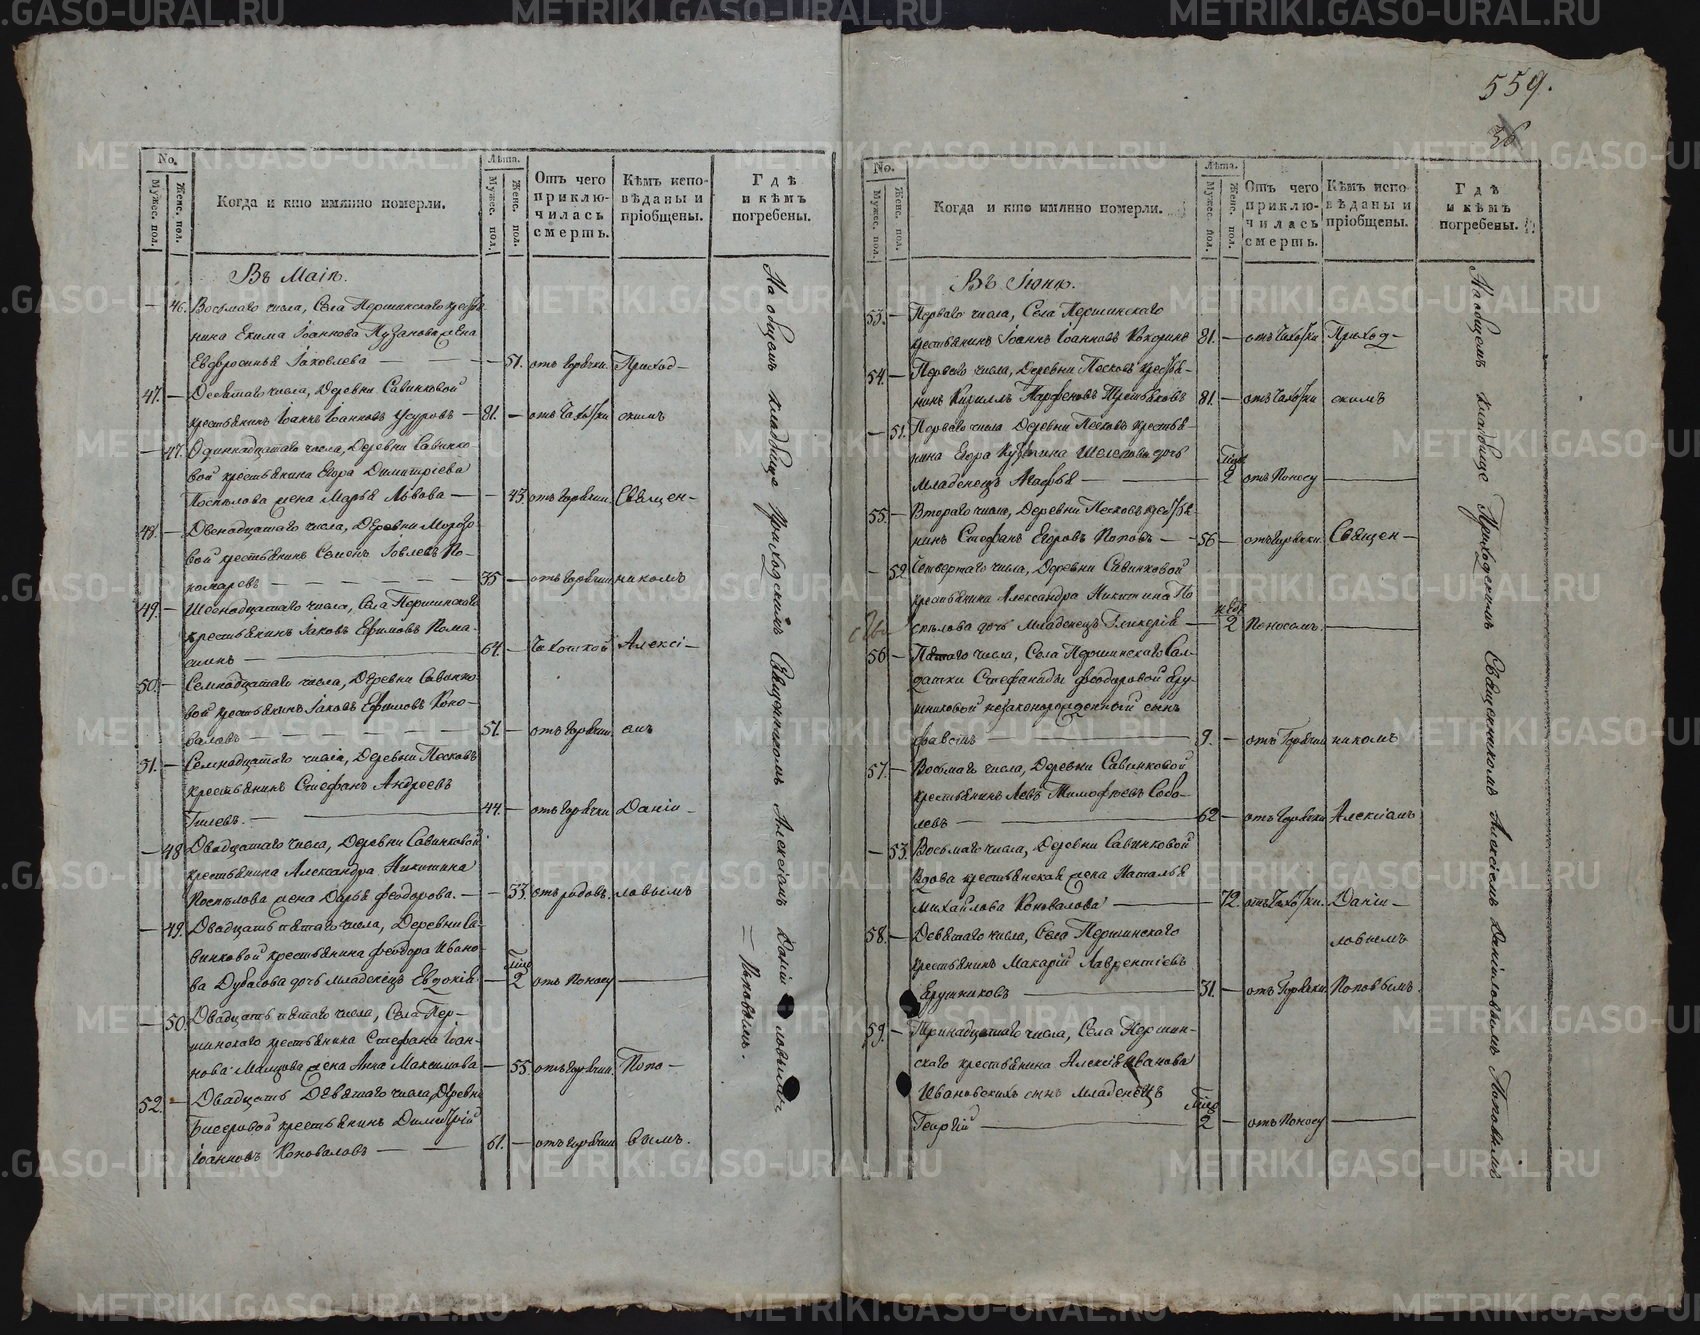 No.
Мужес. пол.
Женс. пол.
Когда и кто имянно померли.
Лѣта.
Мужес. пол.
Женс. пол.
Отъ чего
приклю-
чилась
смерть.
Кѣмъ испо-
вѣданы и
пріобщены.
Гдѣ
и кѣмъ
погребены.
Въ Маіѣ.
— 46. Восьмаго числа, Села Першинскаго крестья-
нина Екима Іоаннова Пузанова жена
Евфросинья Іаковлева — 51. отъ горячки. Приход-
47. — Десятаго числа, Деревни Савинковой
крестьянинъ Іоаннъ Іоанновъ — 81. — отъ Чахотки скимъ
— 47. Одиннадцатаго числа, Деревни Савинко-
вой крестьянина Егора Димитріева
Поспѣлова жена Марья Львова — 43. отъ горячки. Священ-
48. — Двенадцатаго числа, Деревни Морозо-
вой крестьянинъ Семенъ Іовлевъ По-
номаревъ — 35 — отъ горячки никомъ
49. — Шеснадцатаго числа, Села Першинскаго
крестьянинъ Іаковъ Ефимовъ Пома-
— 64. — Чахоткой Алексі-
50. — Семнадцатаго числа, Деревни Савинко-
вой крестьянинъ Іаковъ Ефимовъ Коно-
валовъ — 51. — отъ горячки. емъ
51. — Семнадцатаго числа, Деревни Песковъ
крестьянинъ Стефанъ Андреевъ
Гилевъ. — 44. — отъ горячки Даніи-
— 48 Двадцатаго числа, Деревни Савинковой
крестьянина Александра Никитина
Поспѣлова жена Дарья Феодорова. — 33. отъ родовъ. ловымъ
— 49. Двадцать пятаго числа, Деревни Са-
винковой крестьянина Феодора Ивано-
ва Дубасова дочь младенецъ Евдокія — 2 отъ Поносу —
— 50. Двадцать пятаго числа, Села Пер-
шинскаго крестьянина Стефана Іоан-
нова Малцова жена Анна Максимова — 55. отъ горячки. Попо-
52. — Двадцать Девятаго числа, Деревни
Бисеровой крестьянинъ Димитрій
Іоанновъ Коноваловъ — 61. — отъ горячки вымъ.
На общемъ кладбище Приходскимъ Священникомъ Алексіемъ Даніиловымъ
= Поповымъ.
559.
36
No.
Мужес. пол.
Женс. пол.
Когда и кто имянно померли.
Лѣта.
Мужес. пол.
Женс. пол.
Отъ чего
приклю-
чилась
смерть.
Кѣмъ испо-
вѣданы и
пріобщены.
Гдѣ
и кѣмъ
погребены.
Въ Іюнѣ.
53. — Перваго числа, Села Першинскаго
крестьянинъ Іоаннъ Іоанновъ Кокоринъ 81. — отъ Чахотки Приход-
54. — Перваго числа, Деревни Песковъ крестья-
нинъ Кириллъ Парфеновъ Третьяковъ 81. — отъ Чахотки скимъ
— 51. Перваго числа Деревни Песковъ крестья-
нина Егора Кузмина дочь
младенецъ Агафья — 2 отъ Поносу —
55. — Втораго числа, Деревни Песковъ крестья-
нинъ Стефанъ Егоровъ Поповъ — 56 — отъ горячки. Священ-
— 52 Четвертаго числа, Деревни Савинковой
крестьянина Александра Никитина По
спѣлова дочь младенецъ Гликерія — 2 Поносомъ. —
56 — Пятаго числа, Села Першинскаго Сал-
датки Стефаниды Феодоровой Еру-
шниковой незаконорожденный сынъ
Фавстъ — 9. — отъ Горячки никомъ
57. — Восьмаго числа, Деревни Савинковой
крестьянинъ Левъ Тимофеевъ Собо-
левъ — 62 — отъ Горячки Алексіемъ
— 53. Восьмаго числа, Деревни Савинковой
Вдова крестьянская жена Наталья
Михайлова Коновалова — 72. отъ Чахотки. Даніи-
58. — Девятаго числа, Села Першинскаго ловымъ
крестьянинъ Макарій Лаврентіевъ
Ерушниковъ — 31. — отъ Горячки Поповымъ.
59. — Тринадцатаго числа, Села Першин-
скаго крестьянина Алексѣя Иванова
Ивановскихъ сынъ младенецъ
Георгій — 2 — отъ Поносу —
На общемъ кладбище Приходскимъ Священникомъ Алексіемъ Даніиловымъ Поповымъ
METRIKI.GASO-URAL.RU